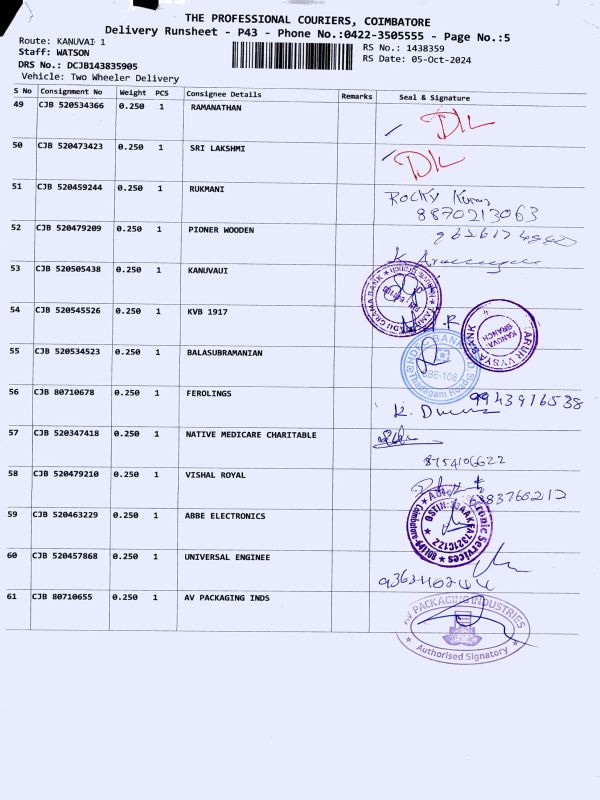 THE PROFESSIONAL COURIERS, COIMBATORE
Delivery Runsheet - P43 - Phone No.:0422-3505555 - Page No.:5
Route: KANUVAI 1
RS No.: 1438359
Staff: WATSON
RS Date: 05-Oct-2024
DRS No.: DCJB143835905
Vehicle: Two Wheeler Delivery
S No Consignment No Weight PCS Consignee Details Remarks Seal & Signature
49 CJB 520534366 0.250 1 RAMANATHAN D/L
50 CJB 520473423 0.250 1 SRI LAKSHMI D/L
51 CJB 520459244 0.250 1 RUKMANI Rocky
8870213063
52 CJB 520479209 0.250 1 PIONER WOODEN
53 CJB 520505438 0.250 1 KANUVAUI
TAMIL NADU GRAMA BANK
54 CJB 520545526 0.250 1 KVB 1917
KARUR VYSYA BANK
KANUVAI
BRANCH
55 CJB 520534523 0.250 1 BALASUBRAMANIAN
HDFC BANK LTD
Thadagam Road
56 CJB 80710678 0.250 1 FEROLINGS 9943916538
57 CJB 520347418 0.250 1 NATIVE MEDICARE CHARITABLE
8754106622
58 CJB 520479210 0.250 1 VISHAL ROYAL
59 CJB 520463229 0.250 1 ABBE ELECTRONICS
Coimbatore
60 CJB 520457868 0.250 1 UNIVERSAL ENGINEE
61 CJB 80710655 0.250 1 AV PACKAGING INDS
AV PACKAGING INDUSTRIES
Authorised Signatory